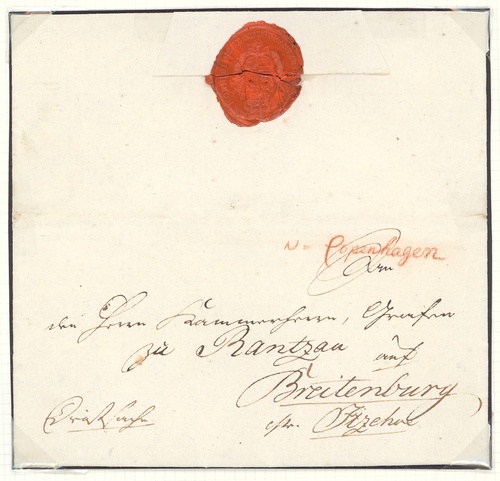 v. Copenhagen
An
den Herrn Kammerherrn, Grafen
zu Rantzau auf
Breitenburg
pstr. Itzehoe